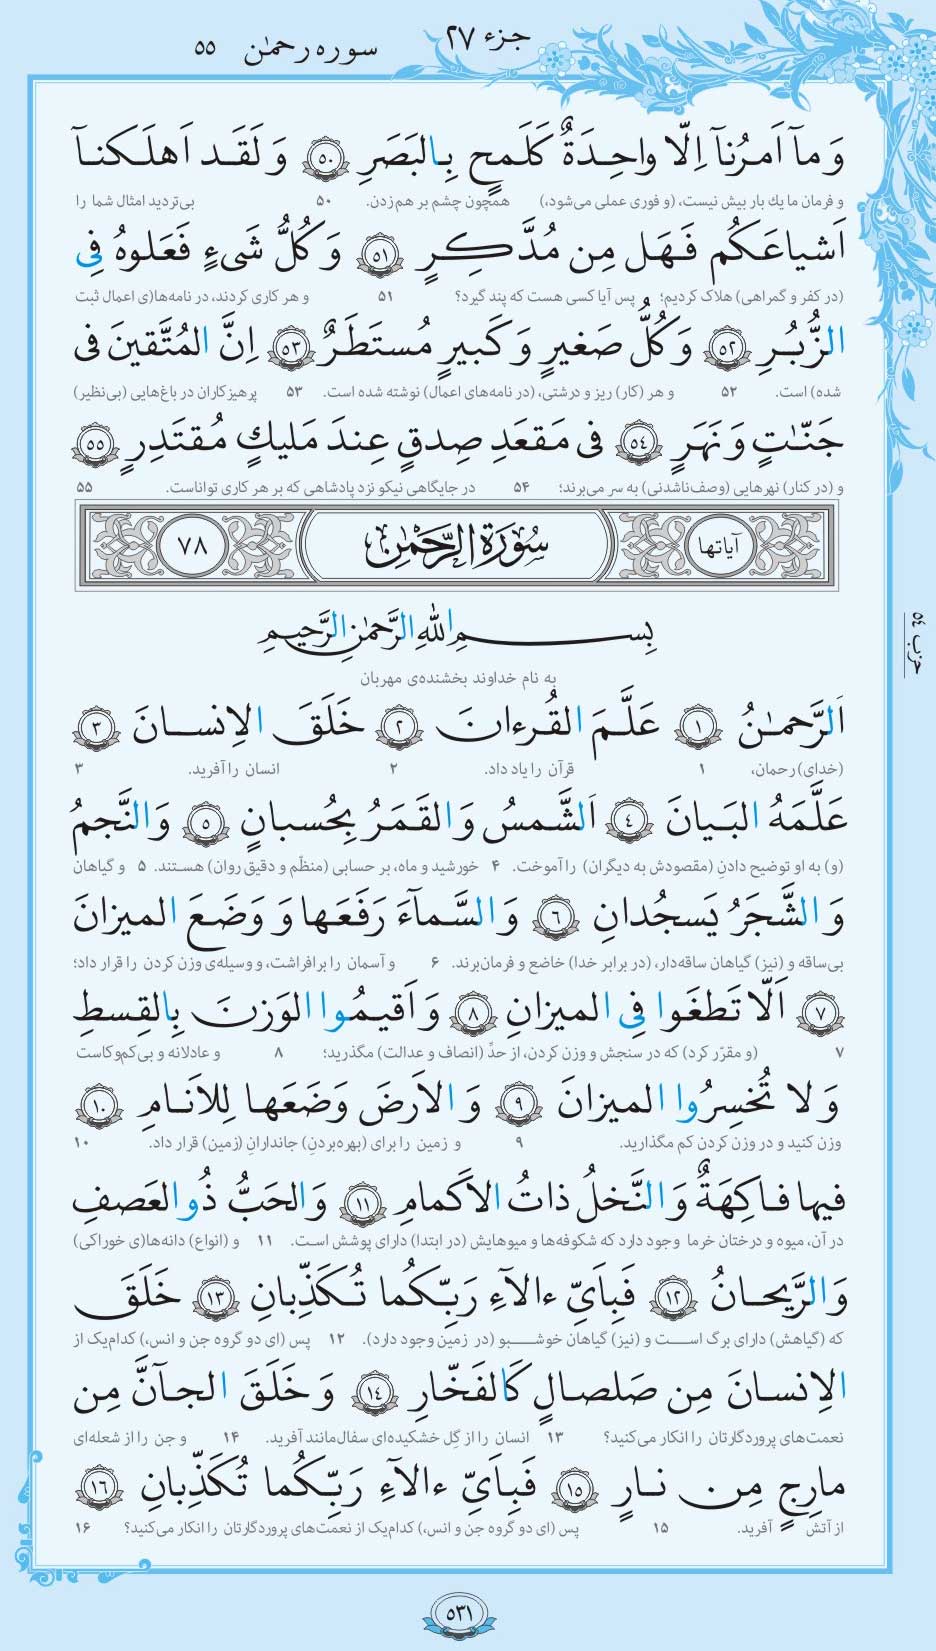 جزء ۲۷
سوره رحمٰن ۵۵
وَ مآ اَمرُنآ اِلّا واحِدَةٌ كَلَمحٍ بِالبَصَرِ ﴿٥٠﴾ وَ لَقَد اَهلَكنآ
و فرمان ما یك بار بیش نیست، (و فوری عملی می‌شود،) همچون چشم بر هم‌زدن. ۵۰ بی‌تردید امثال شما را
اَشياعَكُم فَهَل مِن مُدَّكِرٍ ﴿٥١﴾ وَ كُلُّ شَیءٍ فَعَلوهُ فِی
(در کفر و گمراهی) هلاک کردیم؛ پس آیا کسی هست که پند گیرد؟ ۵۱ و هر کاری کردند، در نامه‌ها(ی اعمال ثبت
الزُّبُرِ ﴿٥٢﴾ وَ كُلُّ صَغيرٍ وَ كَبيرٍ مُستَطَرٌ ﴿٥٣﴾ اِنَّ المُتَّقينَ فی
شده) است. ۵۲ و هر (کار) ریز و درشتی، (در نامه‌های اعمال) نوشته شده است. ۵۳ پرهیزکاران در باغ‌هایی (بی‌نظیر)
جَنّٰتٍ وَ نَهَرٍ ﴿٥٤﴾ فی مَقعَدِ صِدقٍ عِندَ مَليكٍ مُقتَدِرٍ ﴿٥٥﴾
و (در کنار) نهرهایی (وصف‌ناشدنی) به سر می‌برند؛ ۵۴ در جایگاهی نیکو نزد پادشاهی که بر هر کاری تواناست. ۵۵
آیاتها سُورَةُ الرَّحْمٰنِ ٧٨
بِسمِ اللهِ الرَّحمٰنِ الرَّحيمِ
به نام خداوند بخشنده‌ی مهربان
اَلرَّحمٰنُ ﴿١﴾ عَلَّمَ القُرءانَ ﴿٢﴾ خَلَقَ الاِنسانَ ﴿٣﴾
(خدای) رحمان، ۱ قرآن را یاد داد. ۲ انسان را آفرید. ۳
عَلَّمَهُ البَيانَ ﴿٤﴾ اَلشَّمسُ وَ القَمَرُ بِحُسبانٍ ﴿٥﴾ وَ النَّجمُ
(و) به او توضیح دادنِ (مقصودش به دیگران) را آموخت. ۴ خورشید و ماه، بر حسابی (منظّم و دقیق روان) هستند. ۵ و گیاهان
وَ الشَّجَرُ يَسجُدانِ ﴿٦﴾ وَ السَّمآءَ رَفَعَها وَ وَضَعَ الميزانَ
بی‌ساقه و (نیز) گیاهان ساقه‌دار، (در برابر خدا) خاضع و فرمان‌برند. ۶ و آسمان را برافراشت، و وسیله‌ی وزن کردن را قرار داد؛
﴿٧﴾ اَلّا تَطغَوا فِی الميزانِ ﴿٨﴾ وَ اَقيمُوا الوَزنَ بِالقِسطِ
۷ (و مقرّر کرد) که در سنجش و وزن کردن، از حدِّ (انصاف و عدالت) مگذرید؛ ۸ و عادلانه و بی‌کم‌وکاست
وَ لا تُخسِرُوا الميزانَ ﴿٩﴾ وَ الاَرضَ وَضَعَها لِلاَنامِ ﴿١٠﴾
وزن کنید و در وزن کردن کم مگذارید. ۹ و زمین را برای (بهره‌بردنِ) جاندارانِ (زمین) قرار داد. ۱۰
فيها فاكِهَةٌ وَ النَّخلُ ذاتُ الاَكمامِ ﴿١١﴾ وَ الحَبُّ ذُو العَصفِ
در آن، میوه و درختان خرما وجود دارد که شکوفه‌ها و میوهایش (در ابتدا) دارای پوشش است. ۱۱ و (انواع) دانه‌ها(ی خوراکی)
وَ الرَّيحانُ ﴿١٢﴾ فَبِاَیِّ ءالآءِ رَبِّكُما تُكَذِّبانِ ﴿١٣﴾ خَلَقَ
که (گیاهش) دارای برگ است و (نیز) گیاهان خوشبو (در زمین وجود دارد). ۱۲ پس (ای دو گروه جن و انس،) کدام‌یک از
الاِنسانَ مِن صَلصالٍ كَالفَخّارِ ﴿١٤﴾ وَ خَلَقَ الجآنَّ مِن
نعمت‌های پروردگارتان را انکار می‌کنید؟ ۱۳ انسان را از گِل خشکیده‌ای سفال‌مانند آفرید. ۱۴ و جن را از شعله‌ای
مارِجٍ مِن نارٍ ﴿١٥﴾ فَبِاَیِّ ءالآءِ رَبِّكُما تُكَذِّبانِ ﴿١٦﴾
از آتش آفرید. ۱۵ پس (ای دو گروه جن و انس،) کدام‌یک از نعمت‌های پروردگارتان را انکار می‌کنید؟ ۱۶
حزب ٥٤
٥٣١